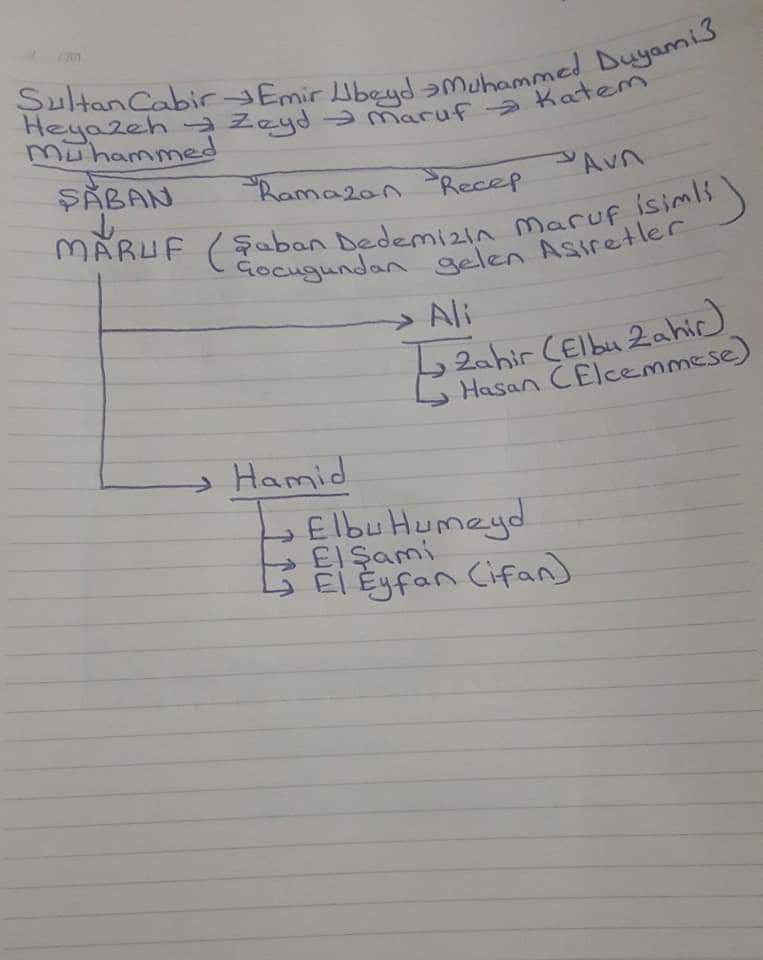 /201
Sultan Cabir → Emir Ubeyd → Muhammed Duyami3
Heyazeh → Zeyd → Maruf → Katem
Muhammed
ŞABAN Ramazan Recep Avn
MARUF (Şaban Dedemizin Maruf isimli
Gocugundan gelen Aşiretler)
Ali
Zahir (Elbu Zahir)
Hasan (Elcemmese)
Hamid
Elbu Humeyd
El Şami
El Eyfan (ifan)